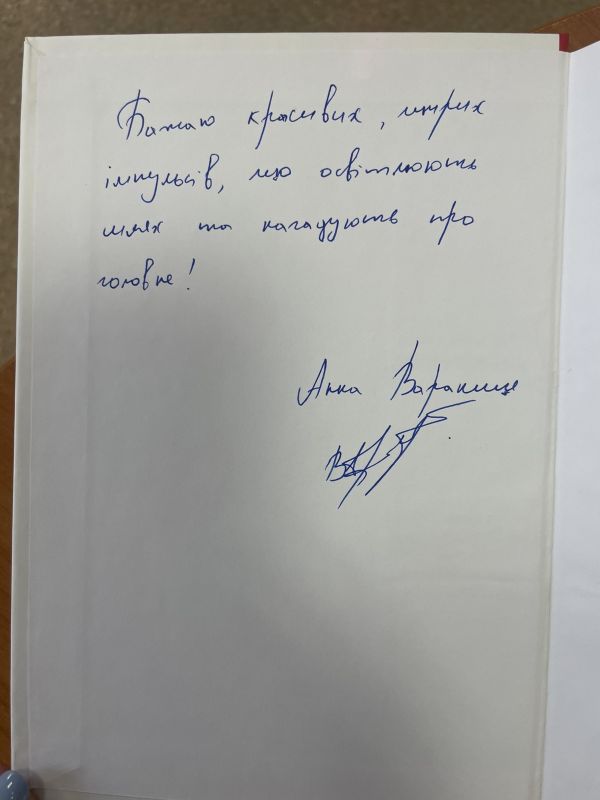 Бажаю красивих, щирих
імпульсів, що освітлюють
шлях та нагадують про
головне!
Анна